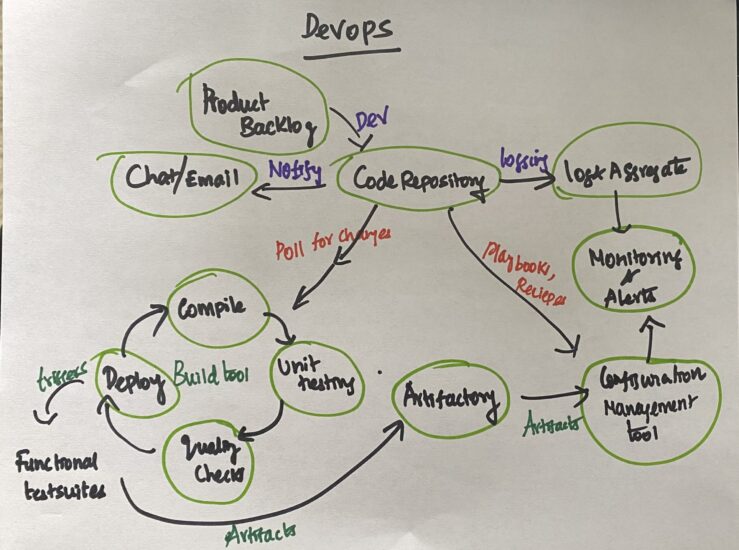 Devops
Product
Backlog
Dev
Chat/Email
Notify
Code Repository
logging
log & Aggregate
Poll for changes
Playbooks,
Reciepes
Monitoring
&
Alerts
Compile
triggers
Deploy
Build tool
Unit
testing
Artifactory
Artifacts
Configuration
Management
tool
Quality
Checks
Functional
testsuites
Artifacts